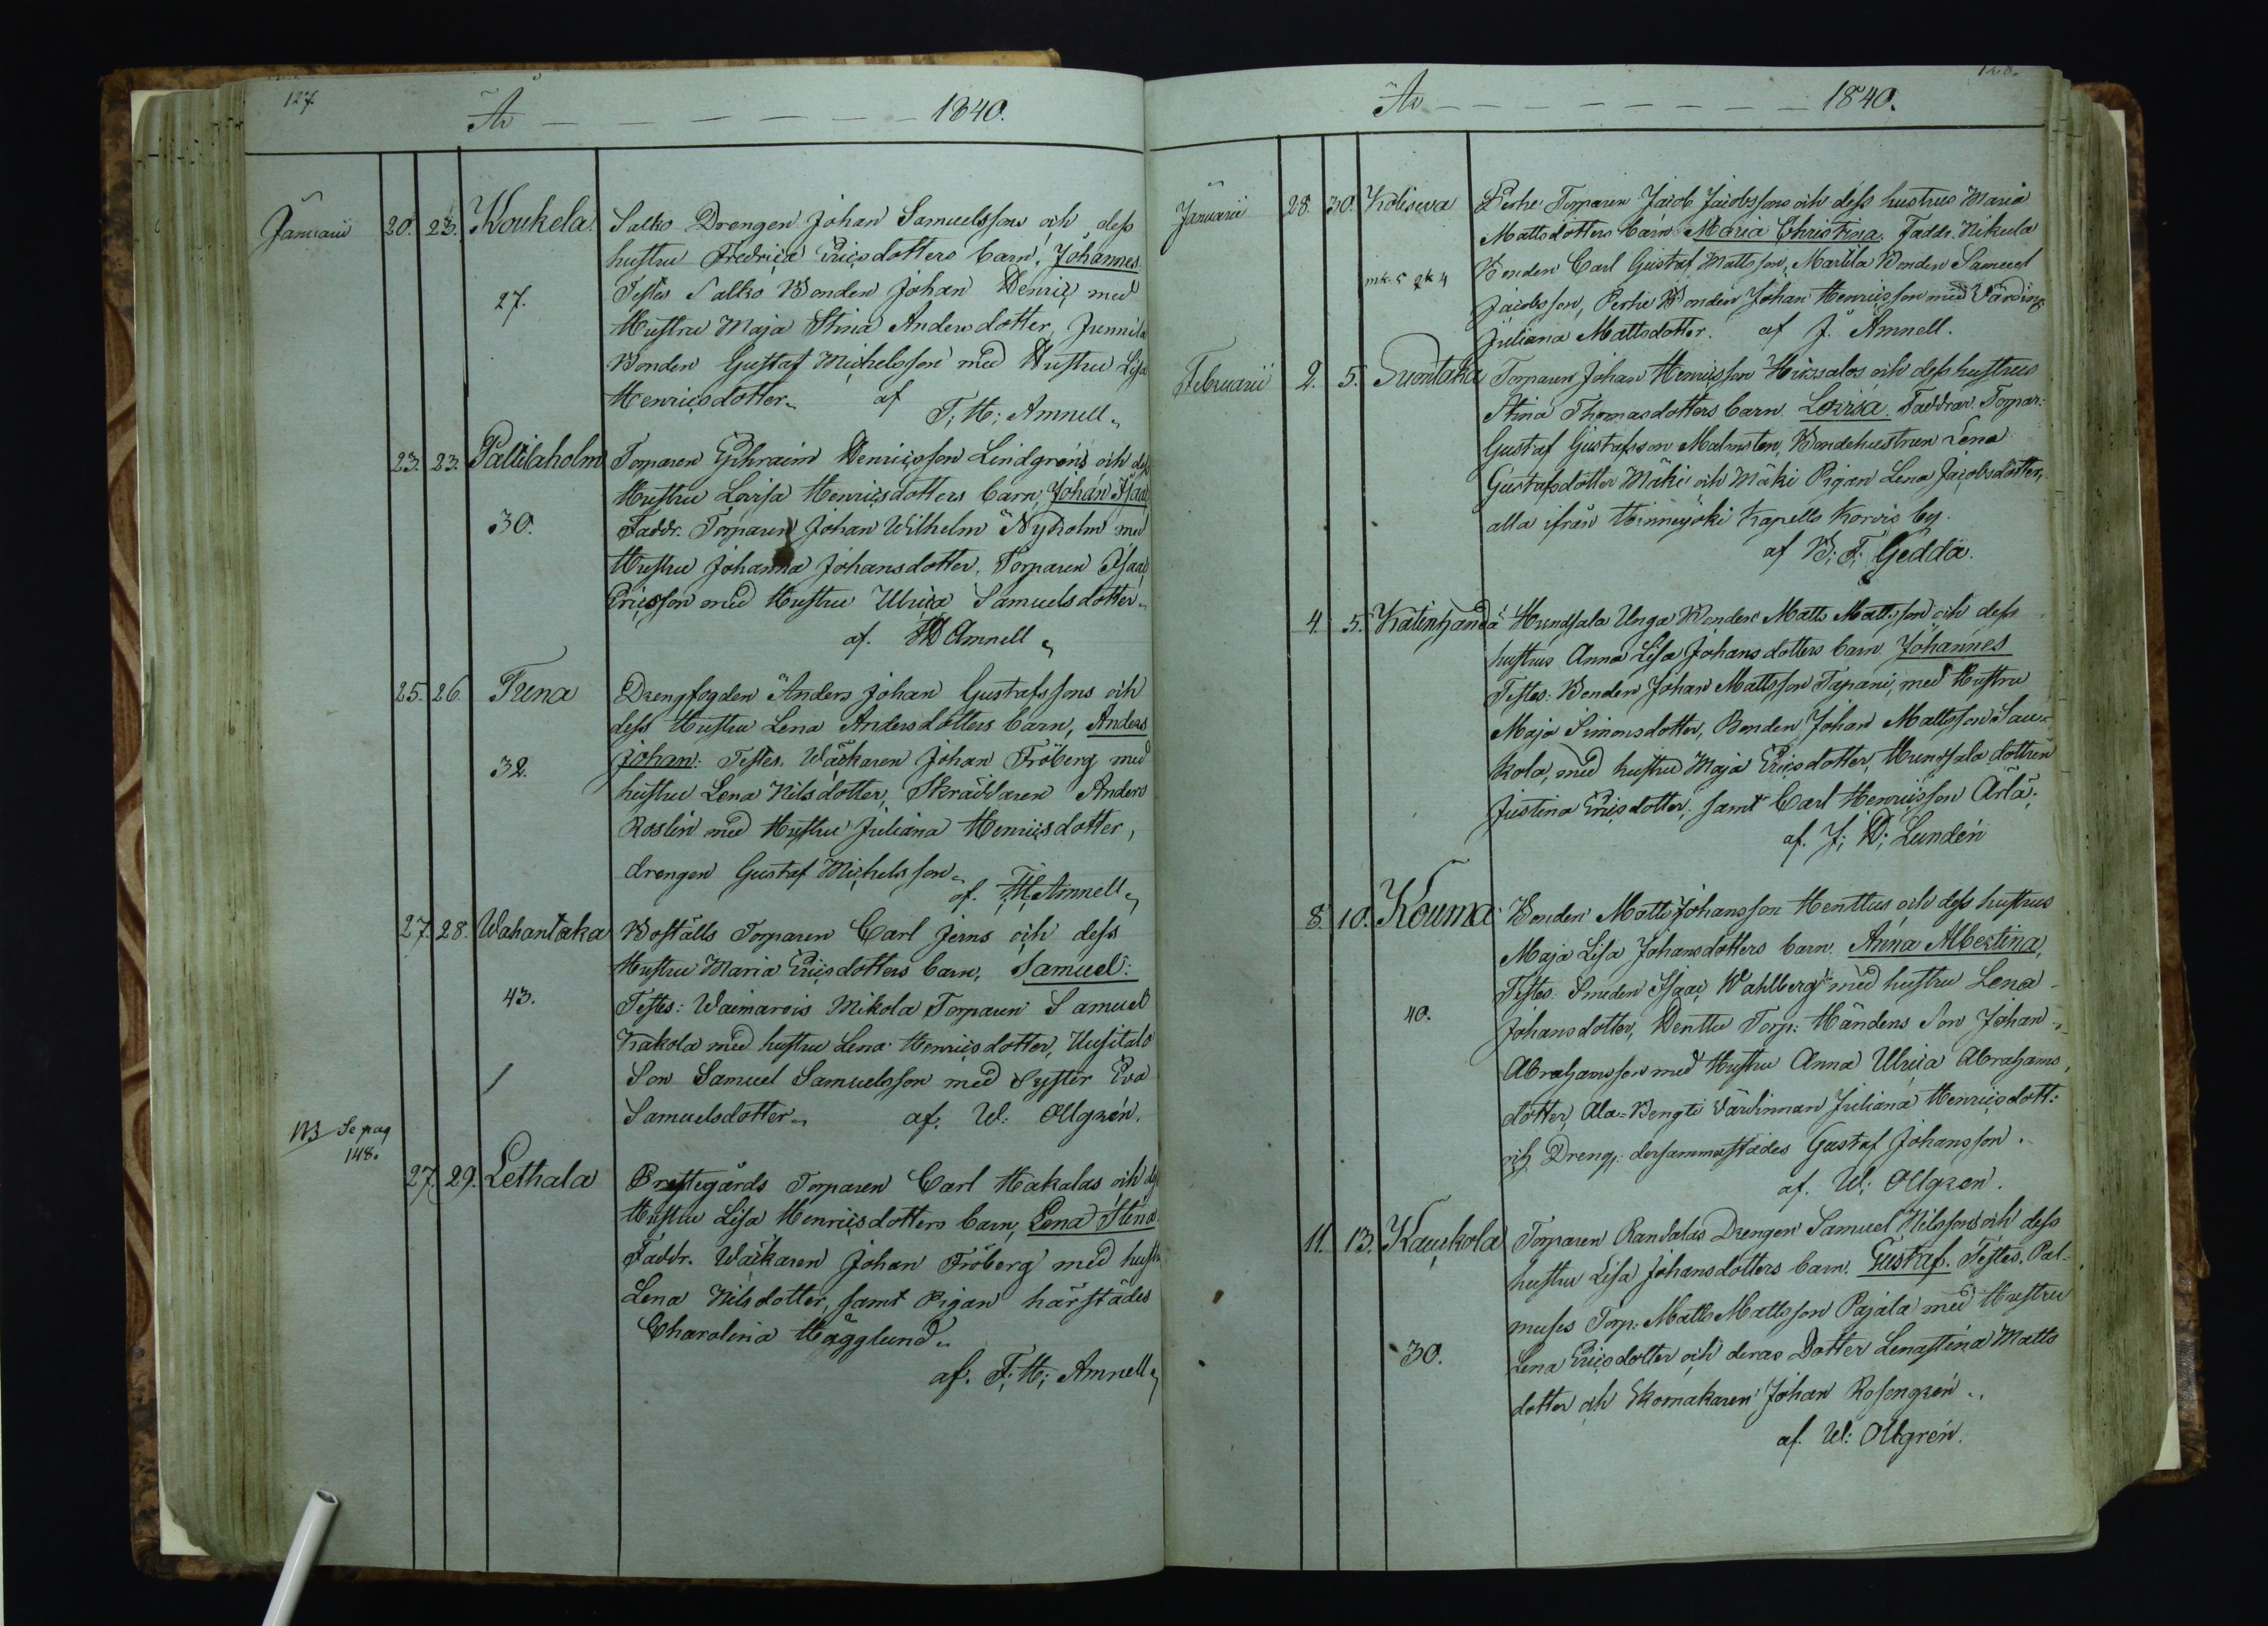 127.
År — — — — — — — — 1840.
Januarii 20. 23. Koukela Salko Drengen Johan Samuelssons och dess
hustru Fredrica Ericsdotters barn, Johannes.
27. Testes Salko Bonden Johan Henric med
Hustru Maja Stina Andersdotter, Junnila
Bonden Gustaf Michelsson med Hustru Lisa
Henricsdotter. af
F. H: Amnell.
23. 23. Paltilaholm Torparen Ephraim Henricsson Lindgrens och dess
Hustru Lovisa Henricsdotters barn, Johan Isaac
30. Faddr. Torparen Johan Wilhelm Nyholm med
Hustru Johanna Johansdotter, Torparen Isaac
Ericsson med Hustru Ulrica Samuelsdotter.
af. Amnell
25. 26. Tuna Drengfogden Anders Johan Gustafssons och
dess Hustru Lena Andersdotters barn, Anders
32. Johan: Testes. Wäckaren Johan Fröberg med
hustru Lena Nilsdotter, Skräddaren Anders
Roslin med Hustru Juliana Henricsdotter,
drengen Gustaf Michelsson.
af. F. H. Amnell
27. 28. Wahantaka Boställs Torparen Carl Jerns och dess
Hustru Maria Ericsdotters barn, Samuel:
43. Testes: Waimarois Mikola Torparen Samuel
Kakola med hustru Lena Henricsdotter, Uusitalo
Son Samuel Samuelsson med Syster Eva
Samuelsdotter. af. W: Ollgrén.
NB Se pag
148.
27. 29. Lethala Prestegårds Torparen Carl Hakalas och dess
Hustru Lisa Henricsdotters barn, Lena Stina
Faddr. Wäckaren Johan Fröberg med hustr
Lena Nilsdotter, samt Pigan härstädes
Charolina Hägglund.
af. F. H; Amnell
128.
År — — — — — — — — 1840.
Januarii 28. 30. Kolisewa Perhe Torparen Jacob Jacobssons och dess hustrus Maria
Mattsdotters barn Maria Christina. Faddr. Nikula
mk. 5 qk 4 Bonden Carl Gustaf Mattsson, Marttila Bonden Samuel
Jacobsson, Perhe Bonden Johan Henricsson med Värding
Juliana Mattsdotter. af J. Amnell.
Februarii 2. 5. Suontaka Torparen Johan Henricsson Hirssalos och dess hustrus
Stina Thomasdotters barn Lovisa. Faddrar. Torpar:
Gustaf Gustafsson Malmsten, Bondehustrun Lena
Gustafsdotter Mäki och Mäki Pigan Lena Jacobsdotter,
alla ifrån Hinneijoki Kapells Korvis by.
af B: F: Gedda.
4. 5. Kätinhanda Hundsala Unga Bonden Matts Mattssons och dess
hustrus Anna Lisa Johansdotters barn Johannes
Testes: Bonden Johan Mattsson Tapani, med Hustru
Maja Simonsdotter, Bonden Johan Mattsson Sau-
kola, med hustru Maja Ericsdotter, Hundsala dottren
Justina Ericsdotter, samt Carl Henricsson Ärlä;
af. J; D; Lundén
8. 10. Kouma Bonden Matts Johansson Henttus och dess hustrus
Maja Lisa Johansdotters barn. Anna Albertina,
Testes. Smeden Isaac Wahlberg med hustru Lena
40. Johansdotter, Henttu Torp: Händens Son Johan
Abrahamsson med Hustru Anna Ulrica Abrahams
dotter, Ala-Bengti Värdinnan Juliana Henricsdott:
och Dreng: dersammastädes Gustaf Johansson.
af. W: Ollgren.
11. 13. Kauckola Torparen Randalas Drengen Samuel Nilssons och dess
hustru Lisa Johansdotters barn. Gustaf. Testes. Pal-
muses Torp: Matts Mattsson Pajala med Hustru
30. Lena Ericsdotter och deras Dotter Lenastina Matts
dotter och Skomakaren Johan Rosengrén.
af. W: Ollgrén.